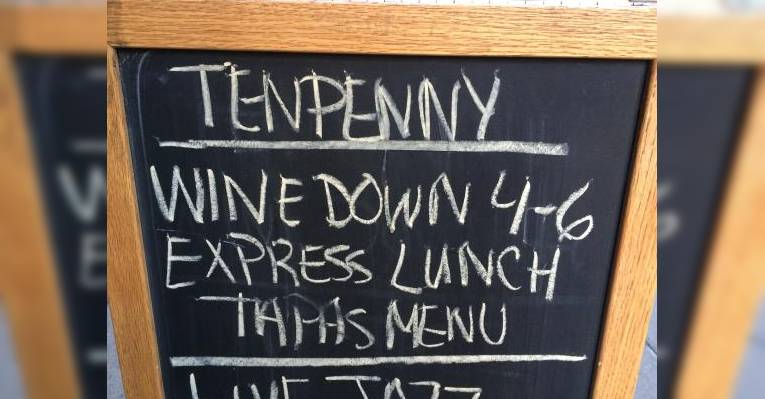 TENPENNY
WINE DOWN 4-6
EXPRESS LUNCH
TAPAS MENU
LIVE JAZZ